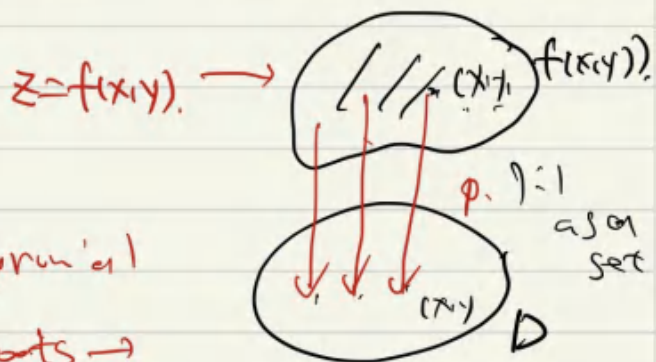 z=f(x,y). → (x,y, f(x,y))
p. 1:1
as a
set
(x,y)
D